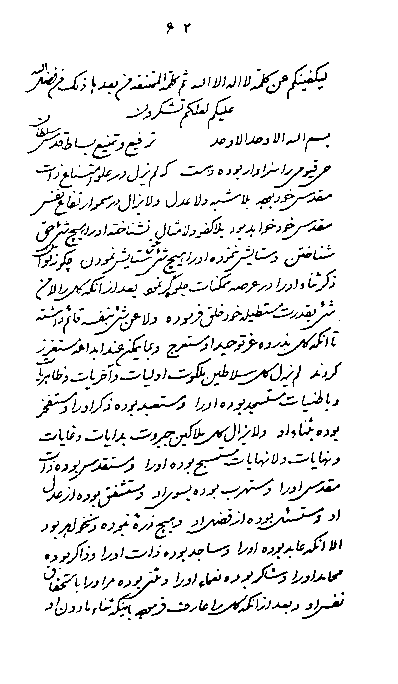 ۶۲
ليكفينكم عن كلمة لا اله الا الله ثم كلمة الممتنعة فمن بعد ما ذلك فرض الله
عليكم لعلكم تشكرون
بسم الله الاوحد الاوحد ترفيع و تمنيع بساط قدس سلطان
حى قيومى را سزاوار بوده و هست كه لم يزل در علو امتناع ذات
مقدس خود بوده بلا شبه و لا عدل و لا يزال در سمو ارتفاع نفس
مقدس خود خواهد بود بلا كفو و لا مثال نشناخته او را هيچ شئ حق
شناختن و ستايش ننموده او را هيچ شئ حق ستايش نمودن چگونه تواند
ذكر ثناء او را در عرصه ممكنات جلوه گر نمود بعد از آنكه كل را لا من
شئ بقدرت مستطيله خود خلق فرموده و لا عن شئ بنفسه قائم داشته
تا آنكه كل بذروه عز توحيد او مستعرج و بما يمكن عند ابداعه مستعزز
گردند لم يزل كل سلاطين ملكوت اوليات و آخريات و ظاهريات
و باطنيات مستمجد بوده او را و مستعبد بوده ذكر او را و مستفخر
بوده بثناء او و لا يزال كل ملاكين جبروت بدايات و غايات
و نهايات و لا نهايات مستسبح بوده او را و مستقدس بوده ذات
مقدس او را و مستهرب بوده بسوى او و مستشفق بوده از عدل
او و مستسئل بوده از فضل او و هيچ ذره نبوده و نخواهد بود
الا آنكه عابد بوده او را و ساجد بوده ذات او را و ذاكر بوده
محامد او را و شاكر بوده نعماء او را و مثنى بوده مر او را باستحقاق
نفس او و بعد از آنكه كل را عارف فرموده باينكه ثناء ما دون او